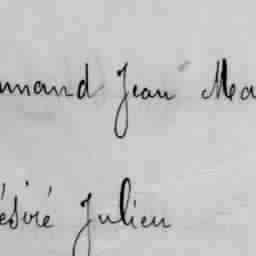 mand Jean Ma
ésiré Julien